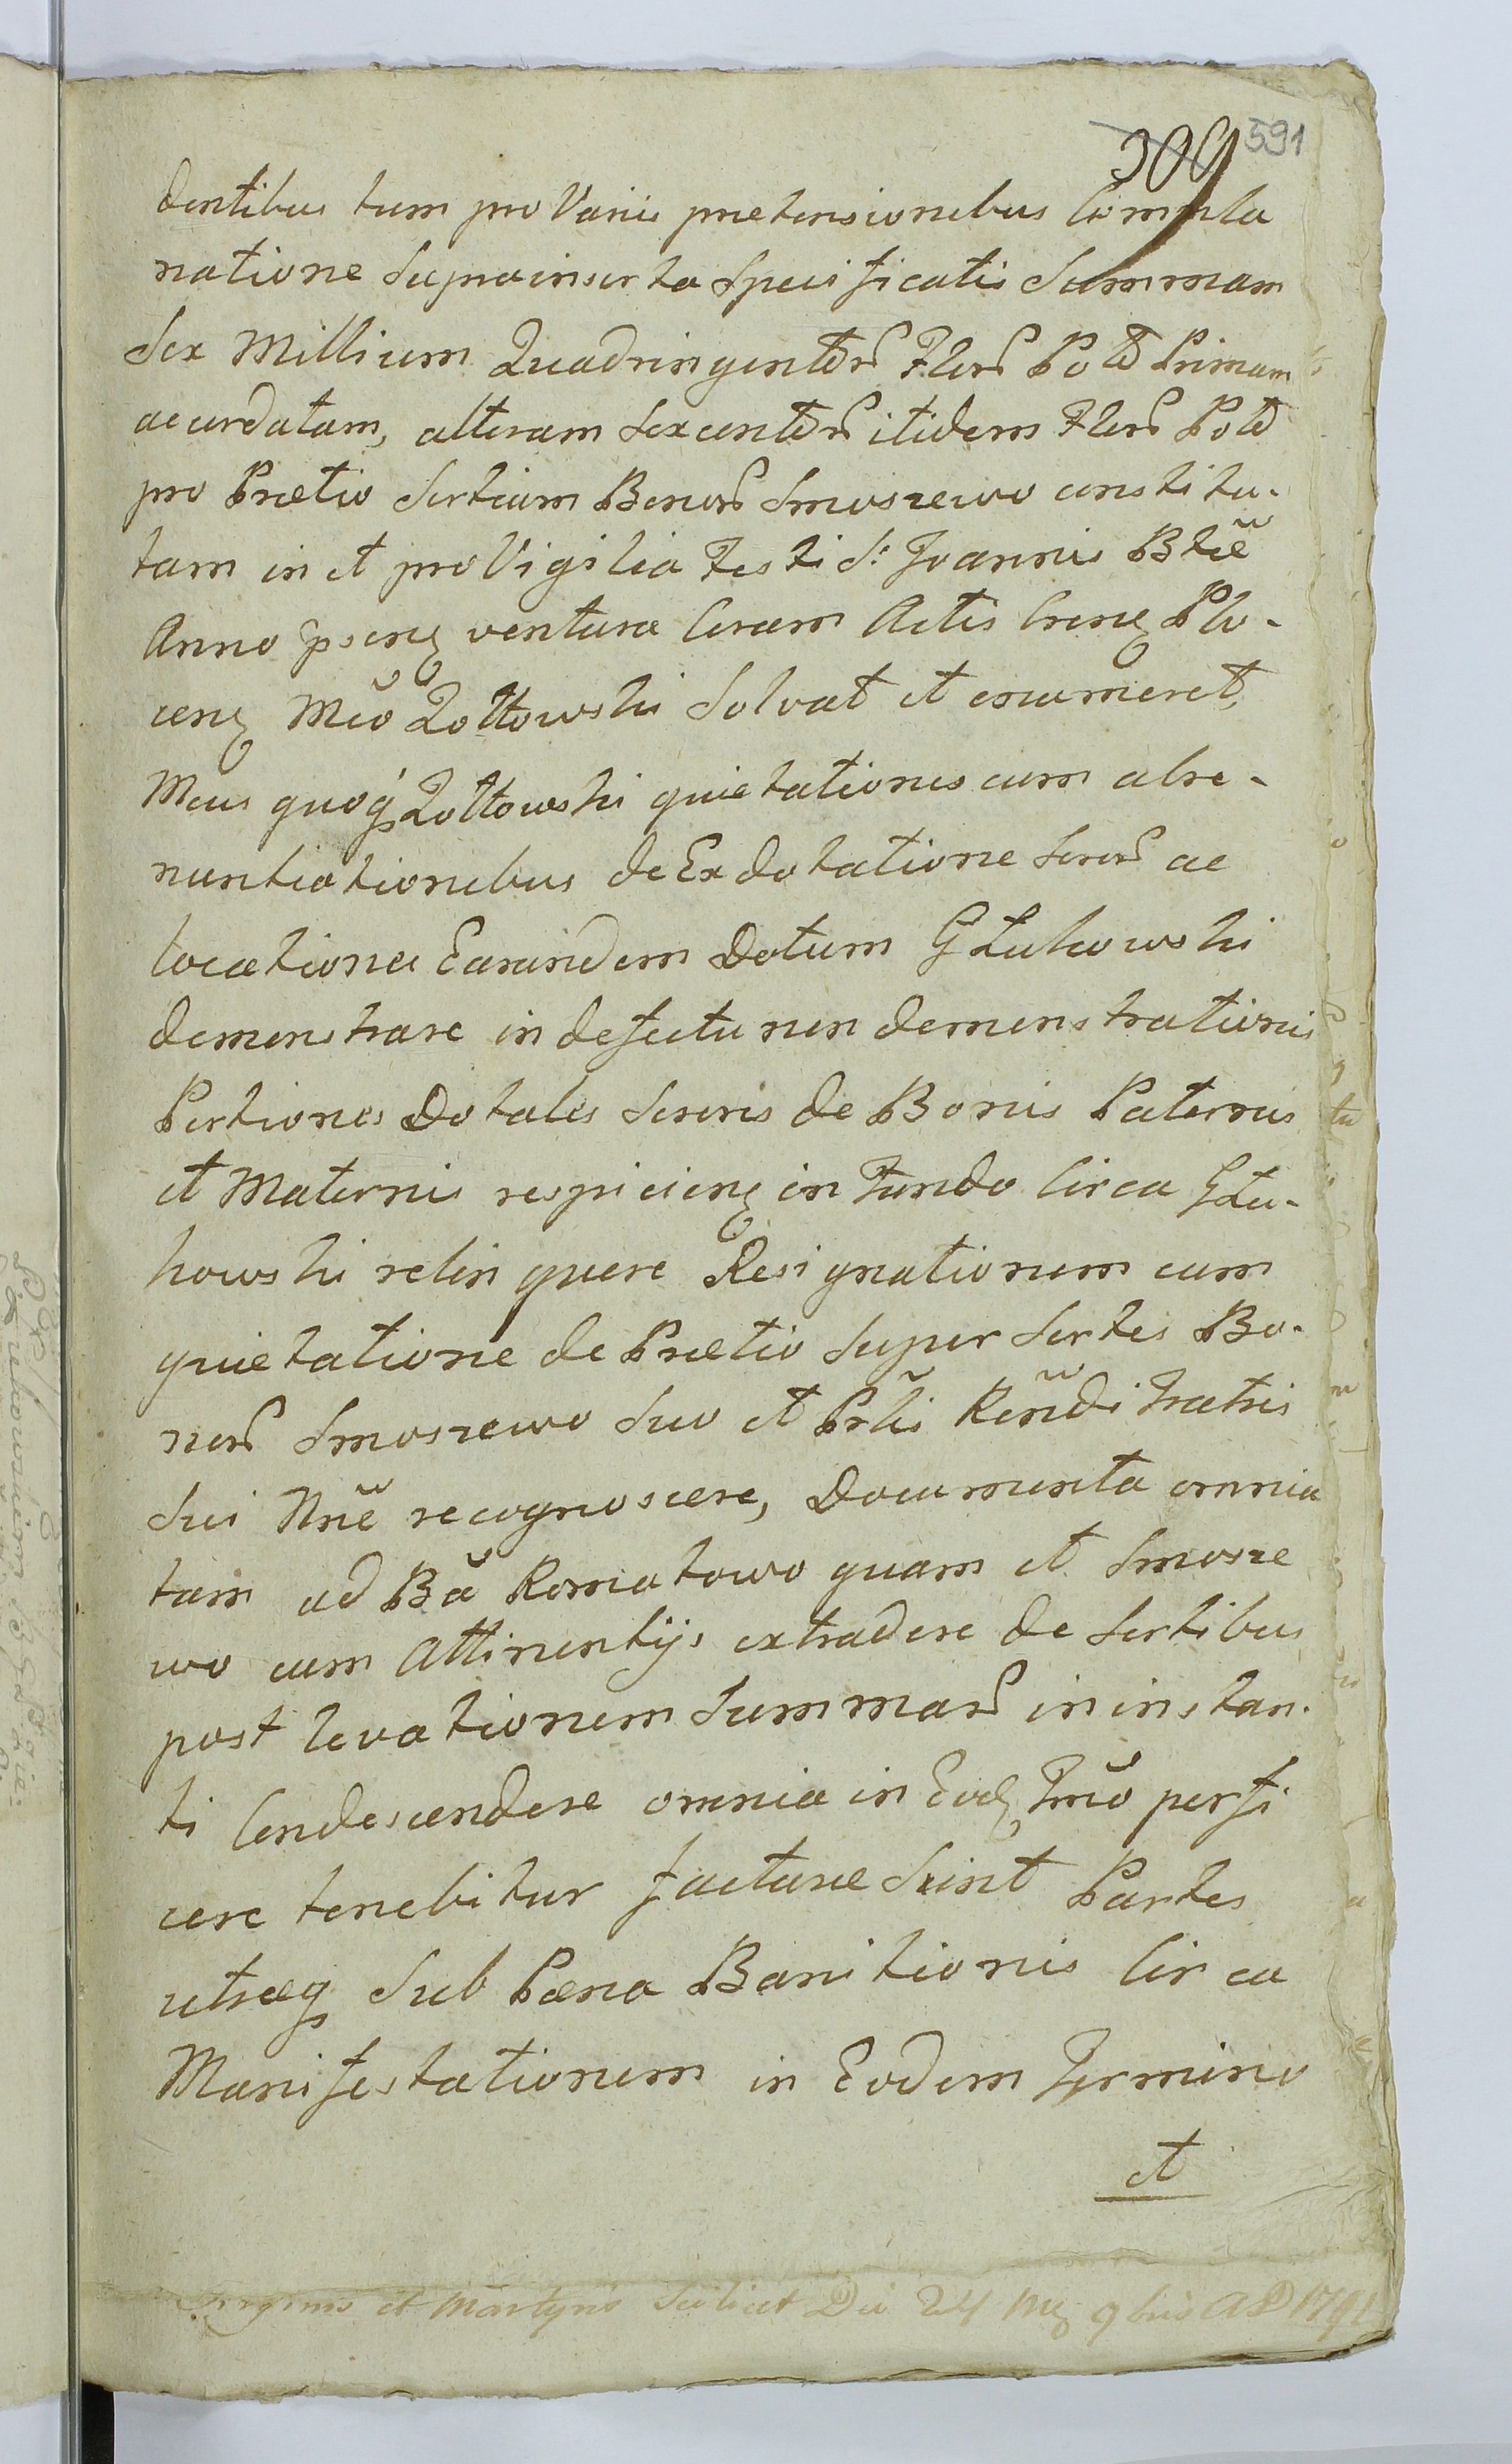 309 591
dentibus tum pro Variis praetensionibus Compla
natione Suprainserta Specificatis Summam
Sex Millium Quadringentor̃ Flor̃ Pol̃ Primam
accordatam, alteram Sexcentor̃ itidem Flor̃ Pol̃
pro Praetio Sortium Bonor̃ Smoszewo constitu-
tam in et pro Vigilia Festi S: Joannis Btae
Anno pseng ventura Coram Actis Creng Plo-
ceng Mco Zołtowski Solvat et enumeret,
Mcus quoq Zołtowski quietationes cum abre-
nuntiationibus de Exdotatione Soror̃ ac
locationes Earundem Dotum G Łukowski
demonstrare in defectu non demonstrationis
Portiones Dotales Sororis de Bonis Paternis
et Maternis respicieng in Fundo Circa G Łu-
kowski relinquere Resignationem cum
quietatione de Praetio Super Sortes Bo-
nor̃ Smoszewo Suo et Prli Rendi Fratris
Sui Nne recognoscere, Documenta omnia
tam ad Ba Romatowo quam et Smosze
wo cum Attinentijs extradere de Sortibus
post levationem Summar̃ in instan-
ti Condescendere omnia in Eod Tmo perfi
cere tenebitur facturae Sunt Partes
utraeq Sub Paena Banitionis Circa
Manifestationem in Eodem Termino
et
Virginis et Martyris Scilicet Die 24 Mg 9bris AD 1791